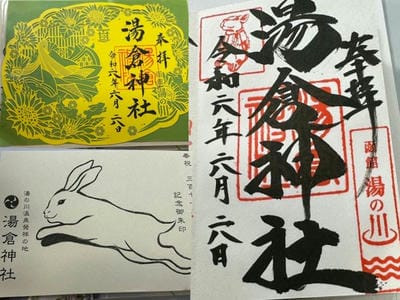 奉拝
湯倉神社
令和
年六月
奉祝 三百
記念御朱印
湯の川温泉発祥の地
湯倉神社
奉拝
湯倉神社
令和
年六月
函館
湯の川